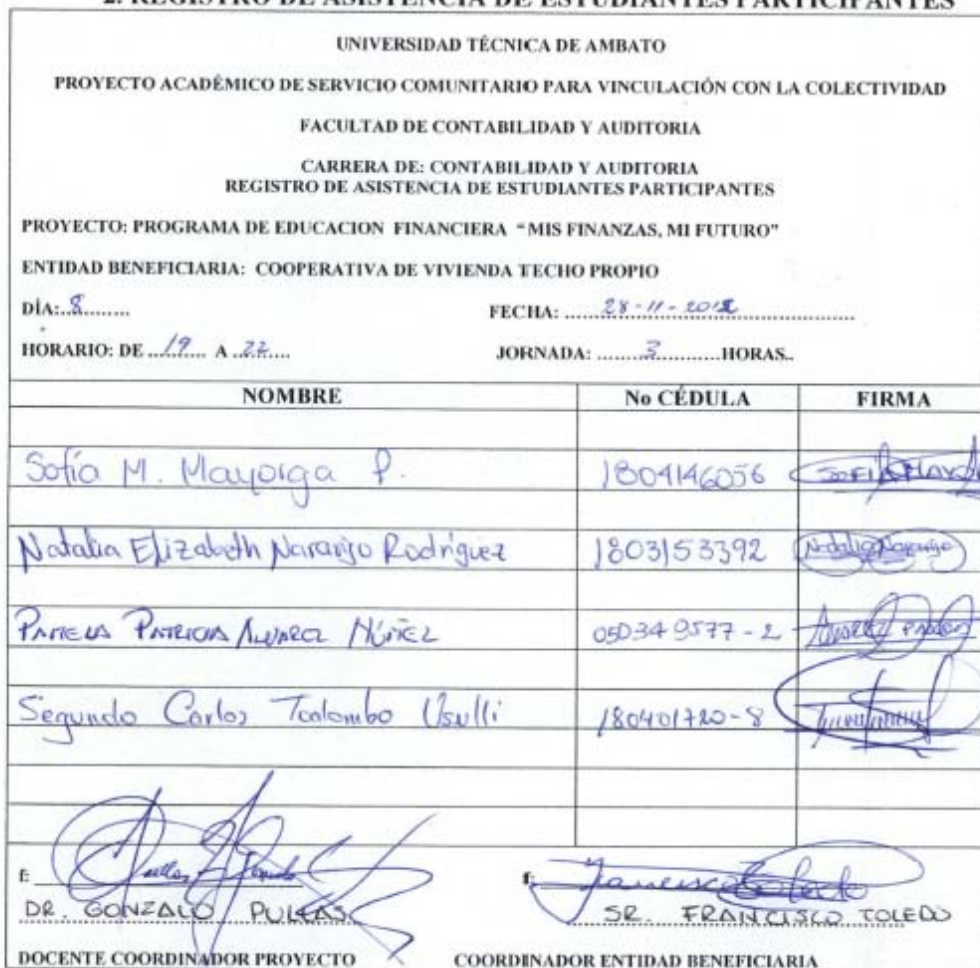 2. REGISTRO DE ASISTENCIA DE ESTUDIANTES PARTICIPANTES
UNIVERSIDAD TÉCNICA DE AMBATO
PROYECTO ACADÉMICO DE SERVICIO COMUNITARIO PARA VINCULACIÓN CON LA COLECTIVIDAD
FACULTAD DE CONTABILIDAD Y AUDITORIA
CARRERA DE: CONTABILIDAD Y AUDITORIA
REGISTRO DE ASISTENCIA DE ESTUDIANTES PARTICIPANTES
PROYECTO: PROGRAMA DE EDUCACION FINANCIERA "MIS FINANZAS, MI FUTURO"
ENTIDAD BENEFICIARIA: COOPERATIVA DE VIVIENDA TECHO PROPIO
DÍA: 8 FECHA: 28-11-2012
HORARIO: DE 19 A 22 JORNADA: 3 HORAS..
NOMBRE No CÉDULA FIRMA
Sofía M. Mayorga P. 1804146056
Natalia Elizabeth Naranjo Rodríguez 1803153392 Natalia Naranjo
Pamela Patricia Alvarez Núñez 050349577-2
Segundo Carlos Toalombo Usulli 180401720-8
f: f:
DR. GONZALO PULLAS SR. FRANCISCO TOLEDO
DOCENTE COORDINADOR PROYECTO COORDINADOR ENTIDAD BENEFICIARIA